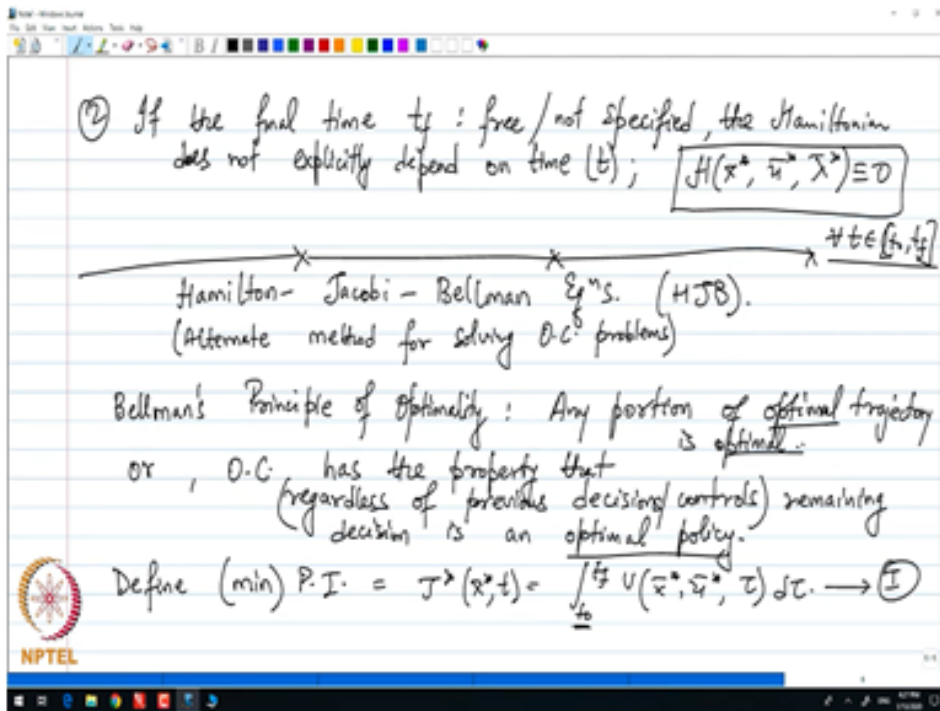 Note1 - Windows Journal
File Edit View Insert Actions Tools Help
② If the final time tf : free / not specified, the Hamiltonian
does not explicitly depend on time (t) ; H(x̄*, ū*, λ̄*) ≡ 0
∀ t ∈ [t0, tf]
Hamilton - Jacobi - Bellman Eqⁿs. (HJB).
(Alternate method for solving O.C. problems)
Bellman's Principle of Optimality : Any portion of optimal trajectory
is optimal.
or , O.C. has the property that
(regardless of previous decision/controls) remaining
decision is an optimal policy.
Define (min) P.I. = J*(x̄*, t) = ∫_{t0}^{tf} V(x̄*, ū*, τ) dτ. → Ⓘ
NPTEL